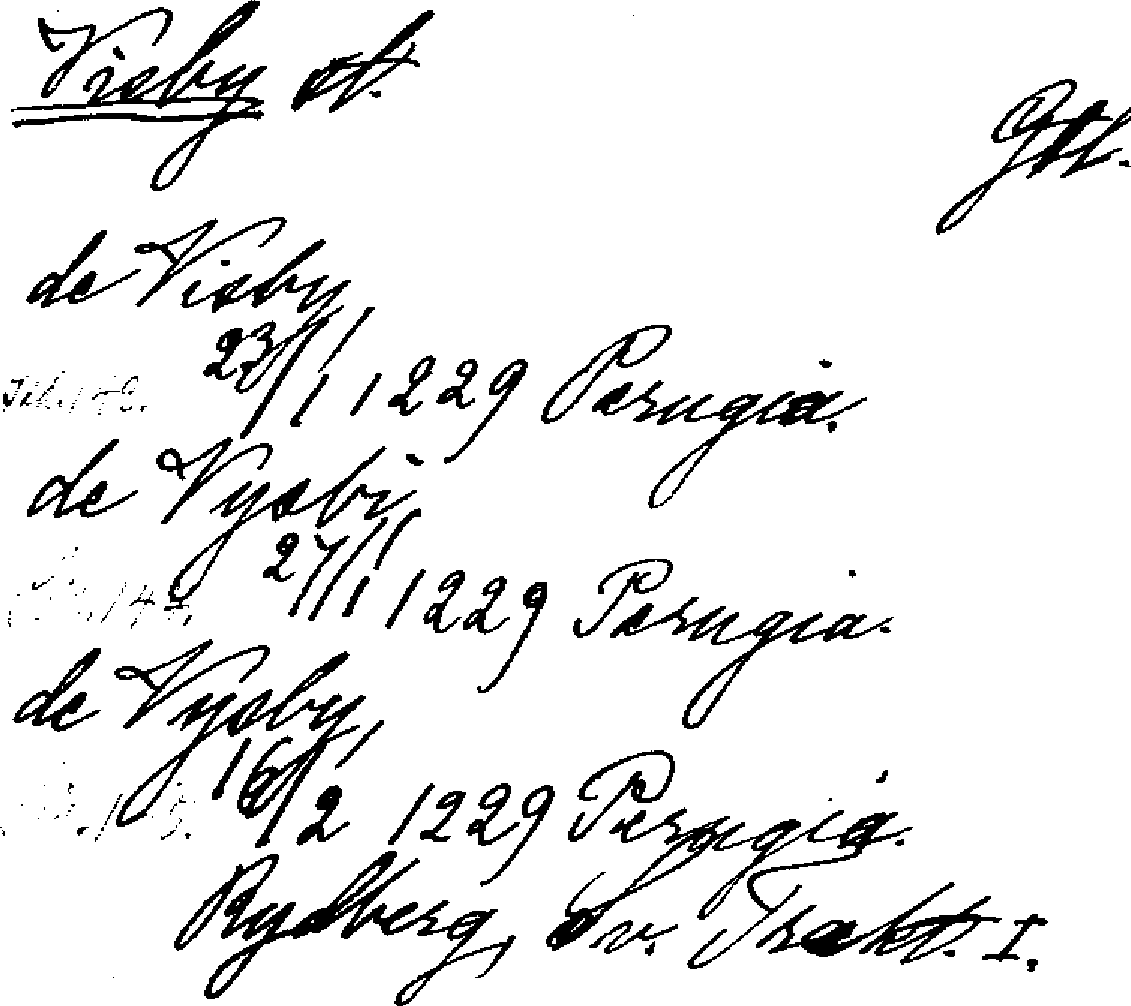 Visby st.
Gtl.
de Visby
23/1 1229 Perugia.
de Vysbi
27/1 1229 Perugia.
de Vysby,
16/2 1229 Perugia.
Rydberg, Sv. Trakt. I.